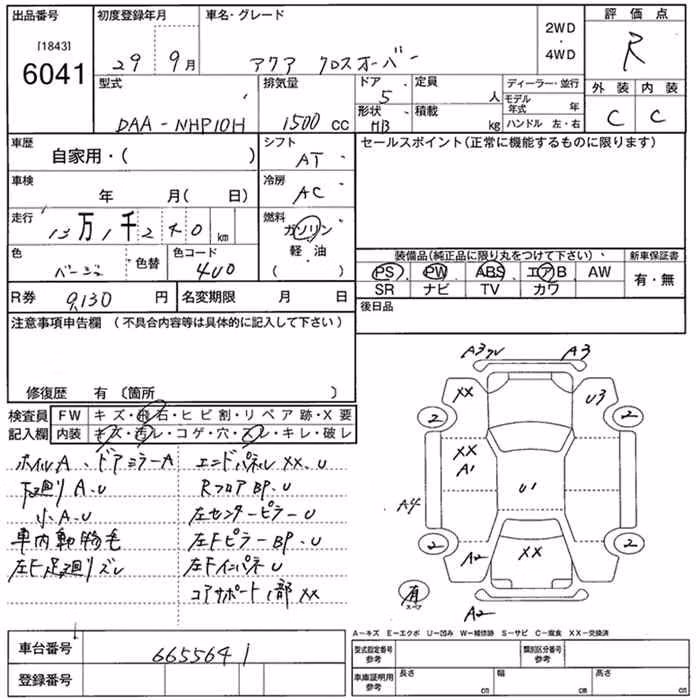 出品番号 初度登録年月 車名・グレード 評価点
[1843] 6041 29年 9月 アクア クロスオーバー 2WD・4WD R
型式 排気量 ドア・ 定員 ディーラー・並行 外装 内装
DAA-NHP10H 1500 CC 5 人 モデル年式 年 C C
形状・ 積載 ハンドル 左・右
HB kg
車歴 シフト セールスポイント(正常に機能するものに限ります)
自家用・( ) AT
車検 冷房
年 月( 日) AC
走行 燃料
13万1千240 km ガソリン
軽・油
( ・ )
色 色替 色コード 装備品(純正品に限り丸をつけて下さい) 新車保証書
ベージュ 4U0 PS PW ABS エアB AW 有・無
SR ナビ TV カワ
R券 9,130円 名変期限 月 日 後日品
注意事項申告欄 (不具合内容等は具体的に記入して下さい)
修復歴 有 〔箇所 〕
検査員 FW キズ・飛石・ヒビ割・リペア跡・X要
記入欄 内装 キズ・汚レ・コゲ・穴・スレ・キレ・破レ
ホイルA、ドアミラーA エンドパネルXX、U
下廻りA、U RフロアBP、U
小A、U 左センターピラーU
車内動物毛 左FピラーBP、U
左F足廻りズレ 左FインパネU
コアサポート1部XX
A3 A3
XX U3
2 2
XX
A1
U1
A4
2 2
A2 XX
有
スペア
A2
A-キズ E-エクボ U-凹み W-補修跡 S-サビ C-腐食 XX-交換済
車台番号 6655641
型式指定番号 参考 類別区分番号 参考
登録番号
車庫証明用 参考 長さ cm 幅 cm 高さ cm